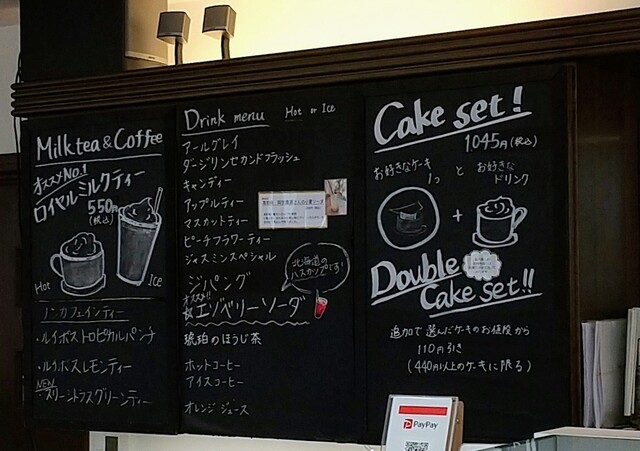 Milktea & Coffee
オススメNo.1
ロイヤルミルクティー
550円
(税込)
Hot
Ice
ノンカフェインティー
・ルイボストロピカルパンチ
・ルイボスレモンティー
NEW
Drink menu Hot or Ice
アールグレイ
ダージリンセカンドフラッシュ
キャンディー
アップルティー
マスカットティー
ピーチフラワーティー
ジャスミンスペシャル
ジパング
オススメ!
☆エゾベリーソーダ
北海道の
ハスカップです!
琥珀のほうじ茶
ホットコーヒー
アイスコーヒー
オレンジジュース
Cake set!
1045円(税込)
お好きなケーキ
1つ
と
お好きな
ドリンク
+
Double
Cake set!!
追加で選んだケーキのお値段から
110円引き
(440円以上のケーキに限る)
PayPay